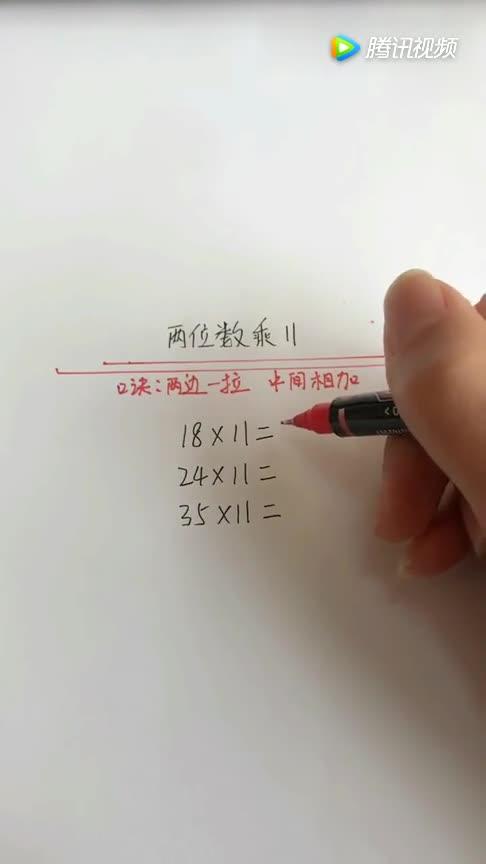 腾讯视频
两位数乘11
口诀:两边一拉 中间相加
18×11=
24×11=
35×11=